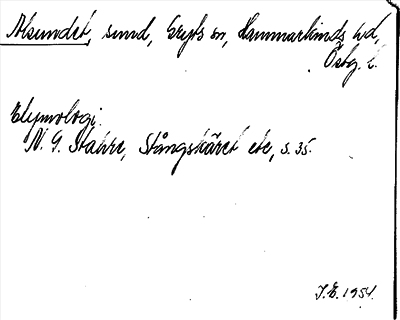 Alsundet, sund, Gryts sn, Hammarkinds hd,
Östg. l.
Etymologi:
N. G. Stahre, Stångskäret etc, s. 35.
J. E. 1954.